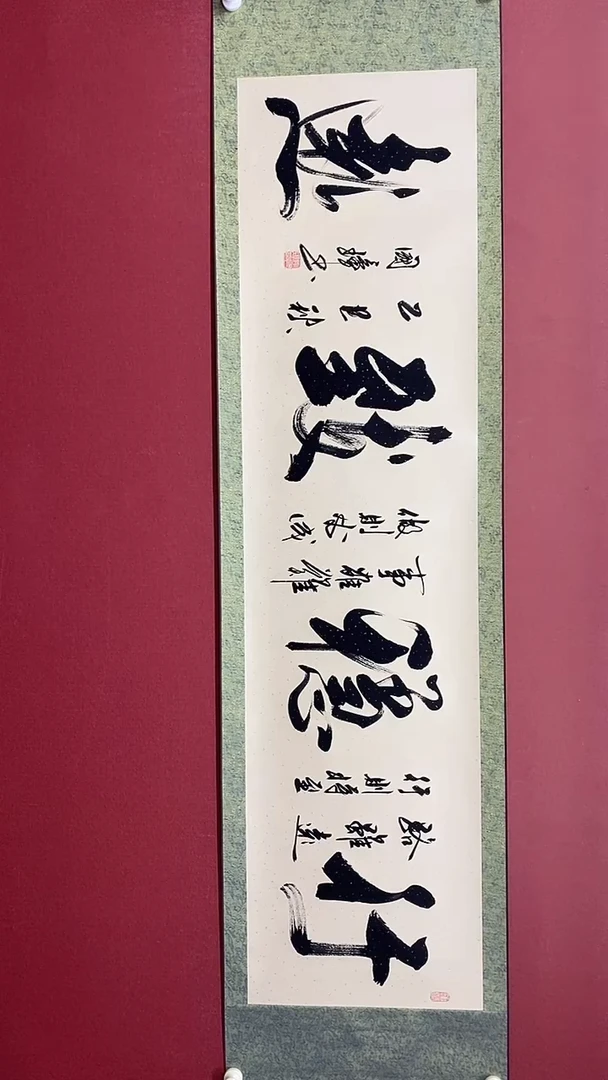 行
路雖遠
行則將至
穩
事雖難
做則必成
致
乙巳秋
國
遠